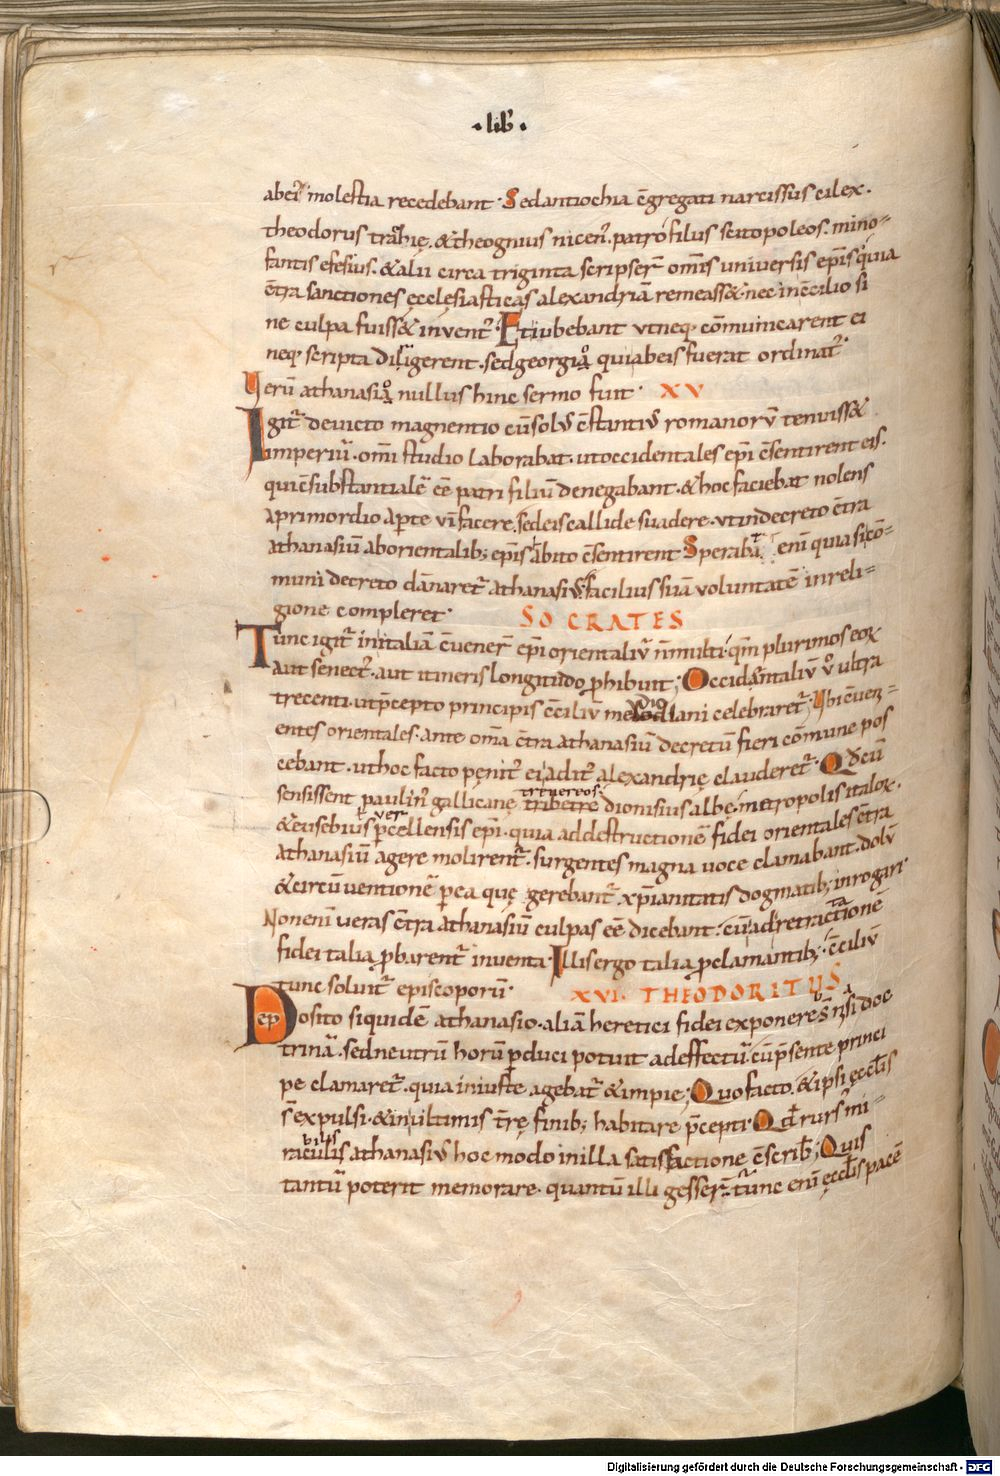 · lib̄ ·
ab ei' molestia recedebant · Sed antiochia c̄gregati narcissus cilex .
theodorus trachię . & theognius nicen' . patrofilus scitopoleos . mino-
fantis efesius . & alii circa triginta scripser̄ om̄is universis ep̄is quia
c̄tra sanctiones ęcclęsiasticas alexandriā remeass& · nec in c̄cilio si
ne culpa fuiss& invent' · Et iubebant ut neq; cōmunicarent ei
neq; scripta diligerent . sed georgio quia beis fuerat ordinat' ·
Verū athanasio nullus hinc sermo fuit · XV
Igit' devicto magnentio cū solus c̄stantius romanorū tenuiss&
imperiū . om̄i studio laborabat . ut occidentales ep̄i c̄sentirent eis .
qui c̄substantialē eē patri filiū denegabant . & hoc faciebat nolens
a primordio aperte vim facere . sed eis callide suadere . ut in decreto c̄tra
athanasiū ab orientalib; ep̄is abito c̄sentirent Sperabat enī quia si cō-
muni decreto dānaret' athanasius facilius suā voluntatē in reli-
gione compleret ·
SOCRATES
Tunc igit' in italiā c̄vener̄ ep̄i orientaliū n̄ multi · qm̄ plurimos eox
aut senect' . aut itineris longitudo phibuit ; Occidentaliū v° ultra
trecenti . ut p̄cepto principis c̄ciliū mediolani celebraret' · Ubi c̄veni-
entes orientales . ante om̄a c̄tra athanasiū decretū fieri cōmune pos
cebant . ut hoc facto pęnit' ei adit' alexandrię clauderet' · Qd cū
sensissent paulin' gallicanę treveros triberre dionisius albe . metropolis italox .
& eusebius vercellensis ep̄i · quia ad destructionē fidei orientales c̄tra
athanasiū agere molirent' . surgentes magna voce clamabant . dolū
& circūventionē p ea quę gerebant' . xp̄ianitatis dogmatib; inrogari ·
Non enī veras c̄tra athanasiū culpas eē dicebant . cū ad retractationē
fidei talia pbarent' inventa · Illis ergo talia pclamantib; . c̄ciliū
tunc solvit' episcoporū · XVI · THEODORITUS
Deposito siquidē athanasio . aliā heretici fidei exponere s̄ n̄si doc
trinā . sed neutrū horū pduci potuit ad effectū . cū p̄sente princi
pe clamaret' . quia iniuste agebat' & impie ; Quo facto . & ipsi ęccl̄is
s̄ expulsi . & in ultimis t̄rę finib; habitare p̄cepti · Qd rurs' mi-
rabilis athanasius hoc modo in illa satisfactione c̄scrib̄ ; Quis
tantū poterit memorare . quantū illi gesser̄ . tunc enī ęccl̄is pacē
Digitalisierung gefördert durch die Deutsche Forschungsgemeinschaft - DFG